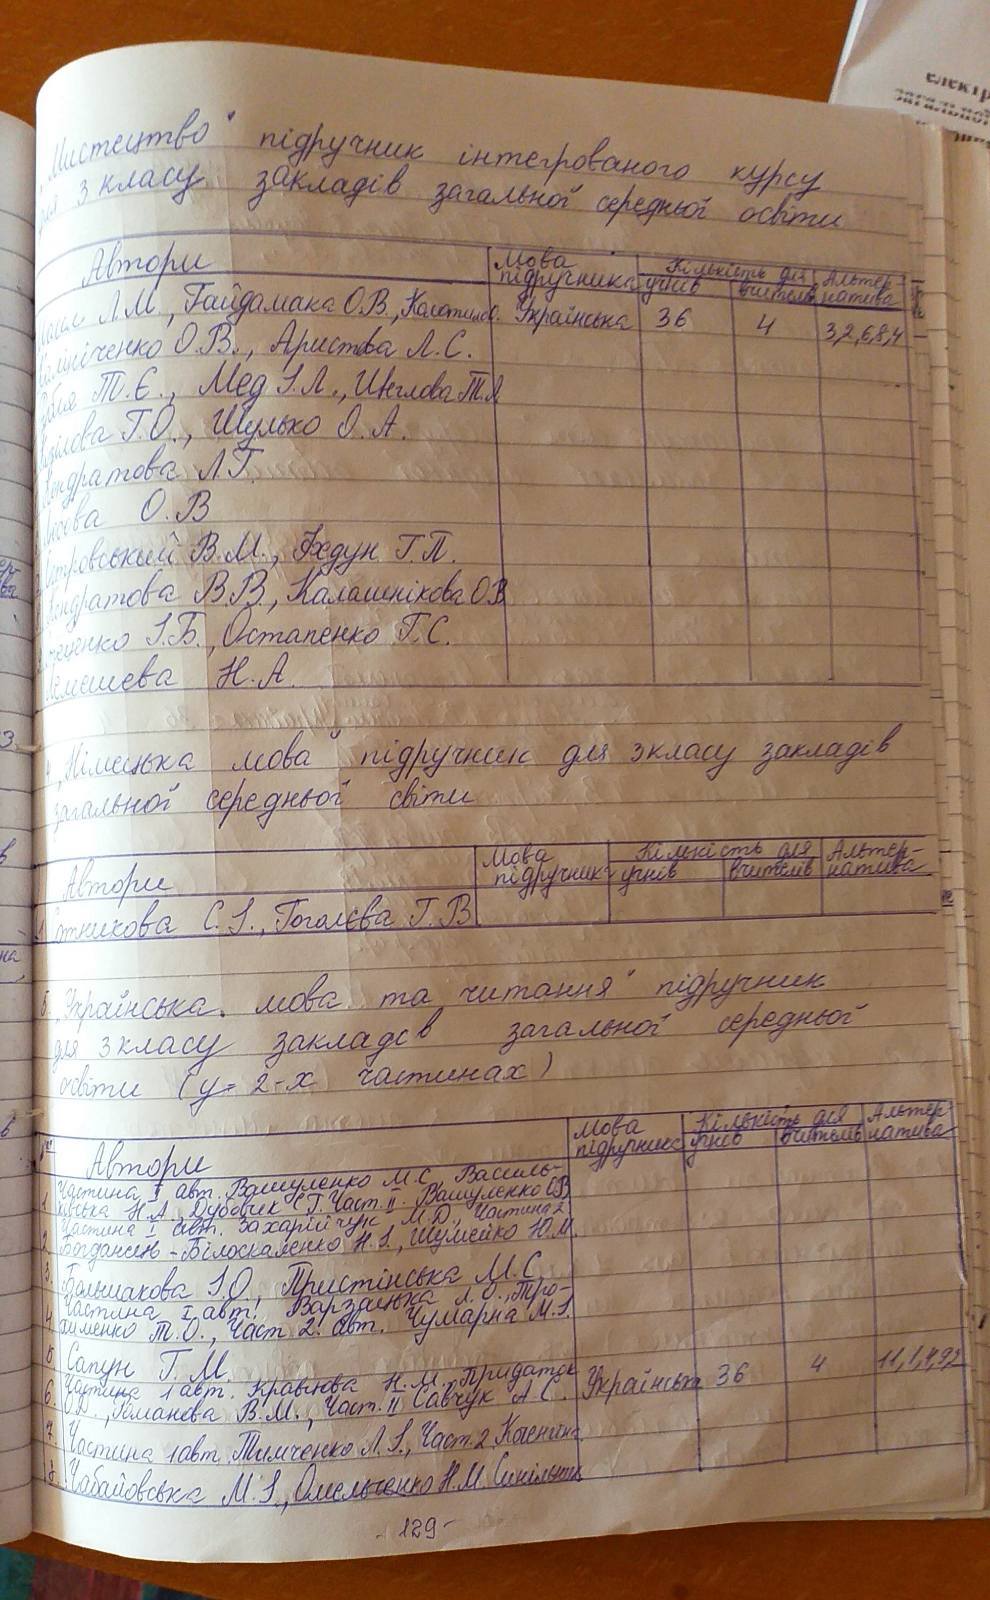 „Мистецтво" підручник інтегрованого курсу
для 3 класу закладів загальної середньої освіти
Автори Мова підручника Кількість для учнів вчителів Альтернатива
Л.М., Гайдамака О.В., Українська 36 4 3,2,6,8,4
Калініченко О.В., Аристова Л.С.
Рубля Т.Є., Мед І.Л., Щеглова Т.Л.
Г.О., Шулько О.А.
Кондратова Л.Г.
Лобова О.В
Островський В.М., Г.П.
Кондратова В.В., Калашнікова О.В
І.Б., Остапенко Г.С.
Лемешева Н.А.
4 „Німецька мова" підручник для 3 класу закладів
загальної середньої світи
Автори Мова підручника Кількість для учнів вчителів Альтер-натива
1 Сотникова С.І., Гоголєва Г.В
5 „Українська мова та читання" підручник
для 3 класу закладів загальної середньої
освіти (у 2-х частинах)
Автори Мова підручника Кількість для учнів вчителів Альтер-натива
1 Частина I авт. Вашуленко М.С, Василь-
ківська Н.А., Дубовик С.Г. Част. II. Вашуленко О.В
2 Частина I авт. Захарійчук М.Д., Частина 2
Богданець-Білоскаленко Н.І., Шумейко Ю.М.
3. Большакова І.О, Пристінська М.С
4 Частина I авт. Варзацька Л.О., Тро-
хименко Т.О., Част 2. авт. Чумарна М.І.
5 Сапун Г.М.
6. Частина 1 авт. Кравцова Н.М., Придаток
О.Д., Романова В.М., Част. II Савчук А.С. Українськ 36 4
7. Частина 1 авт. Тимченко Л.І., Част. 2 Коченгіна
8. Чабайовська М.І., Омельченко Н.М.
- 129 -